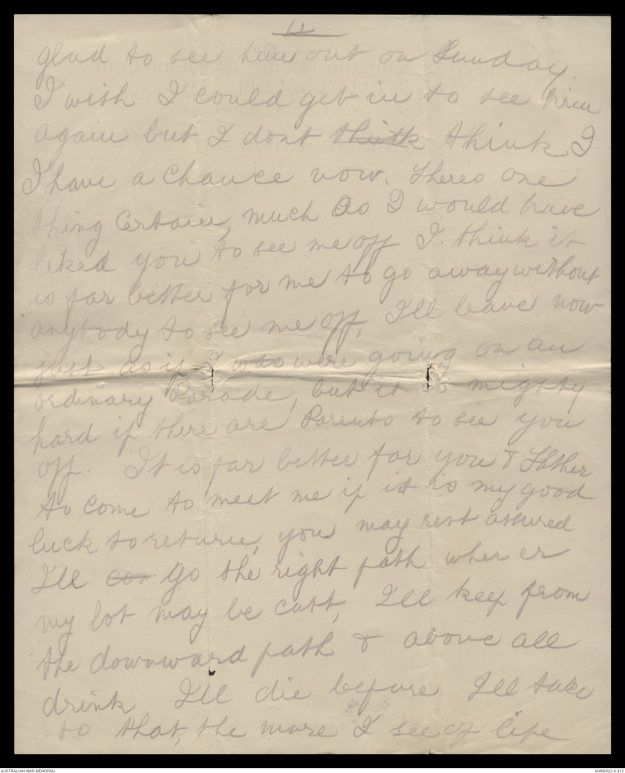 11
glad to see him out on Sunday.
I wish I could get in to see him
again but I dont think think I
I have a chance now. Theres one
thing certain, much as I would have
liked you to see me off I think it
is far better for me to go away without
anybody to see me off, I'll leave now
just as if I was were going on an
ordinary Parade, but it is mighty
hard if there are Parents to see you
off. It is far better for you & Father
to come to meet me if it is my good
luck to return, you may rest assured
I'll go the right path wher er
my lot may be cast, I'll keep from
the downward path & above all
drink I'll die before I'll take
to that, the more I see of life
AUSTRALIAN WAR MEMORIAL